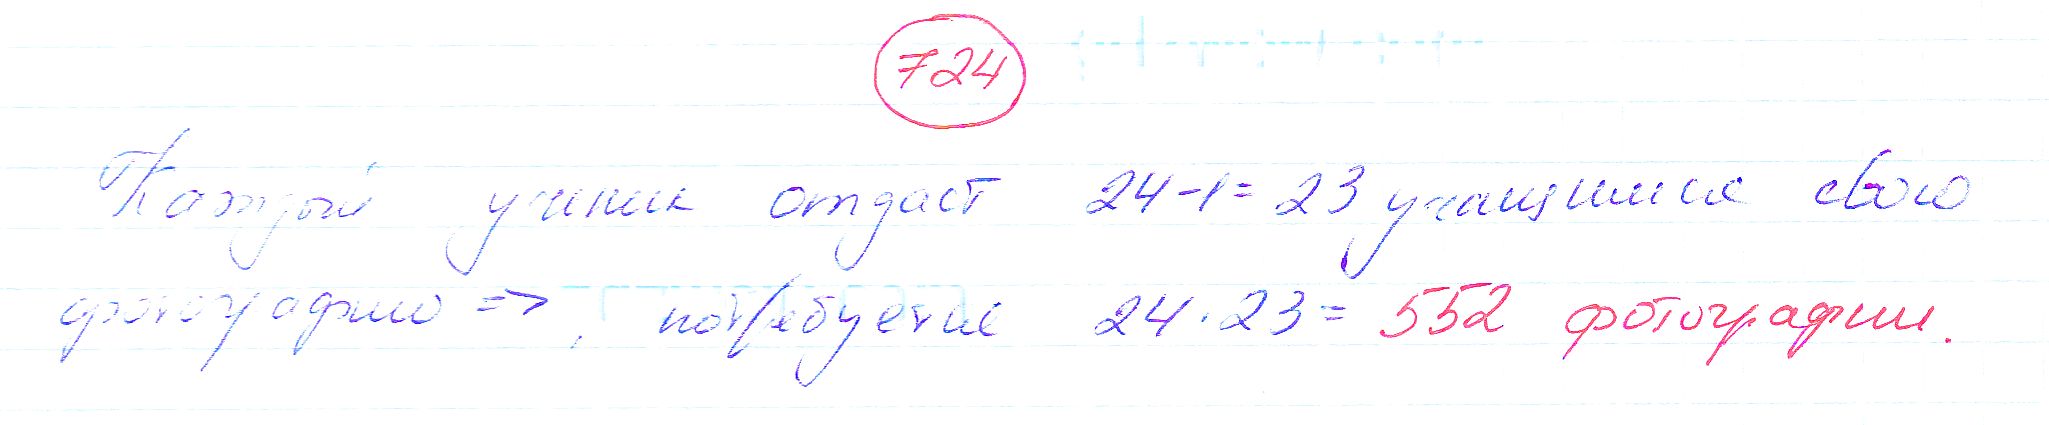 724
Каждый ученик отдаст 24-1=23 учащимися свою
фотографию =>, потребуется 24·23= 552 фотографии.